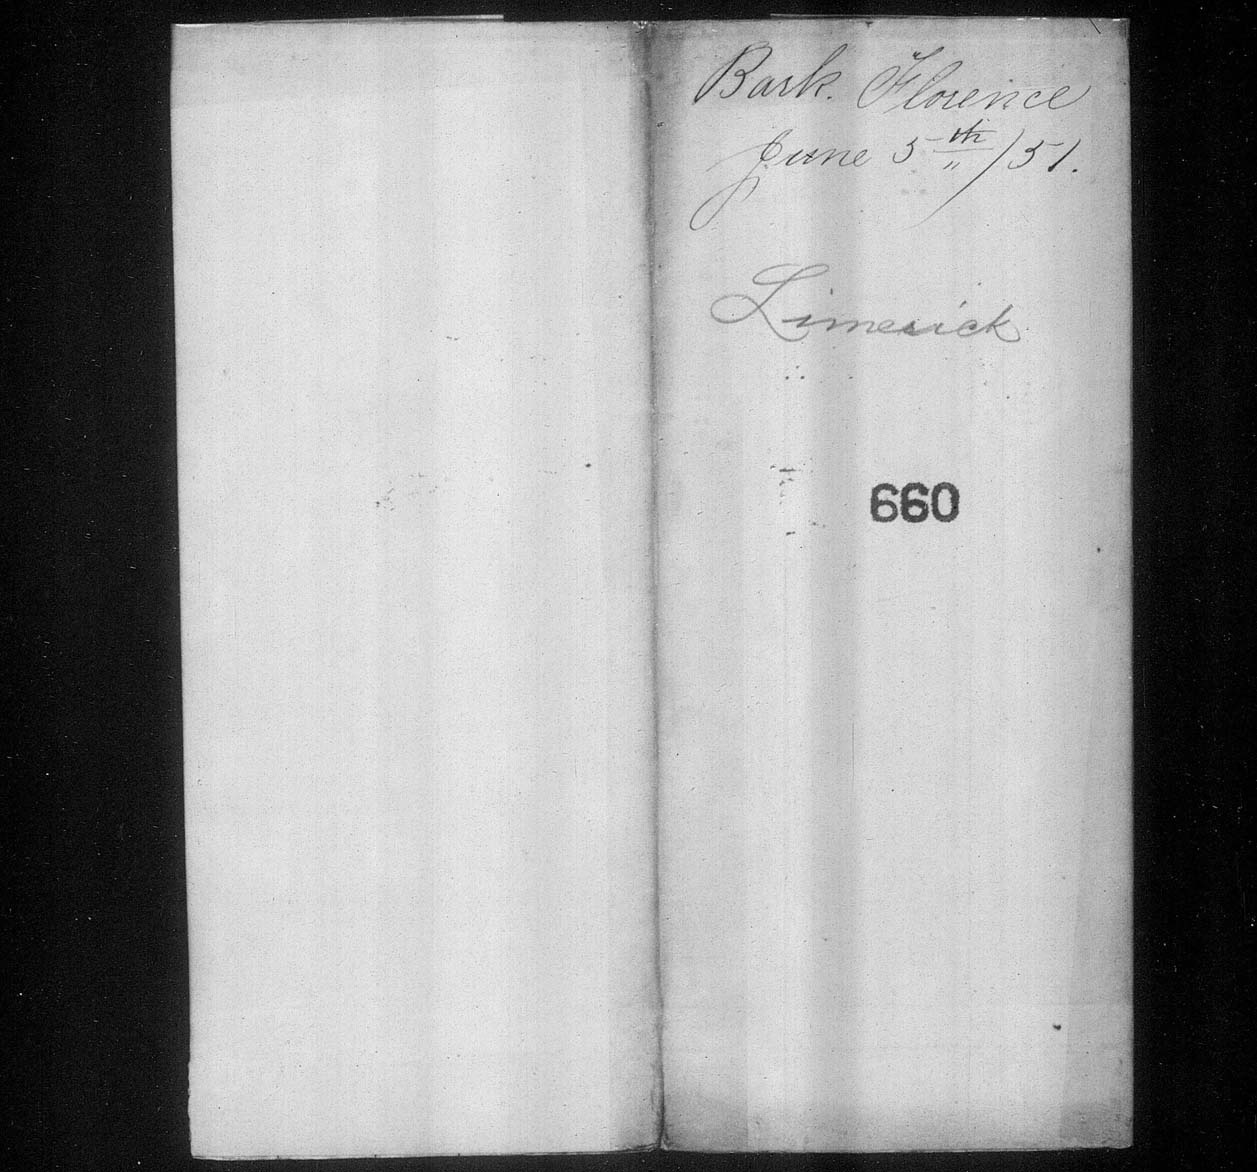 Bark. Florence
June 5th/51.
Limerick
660